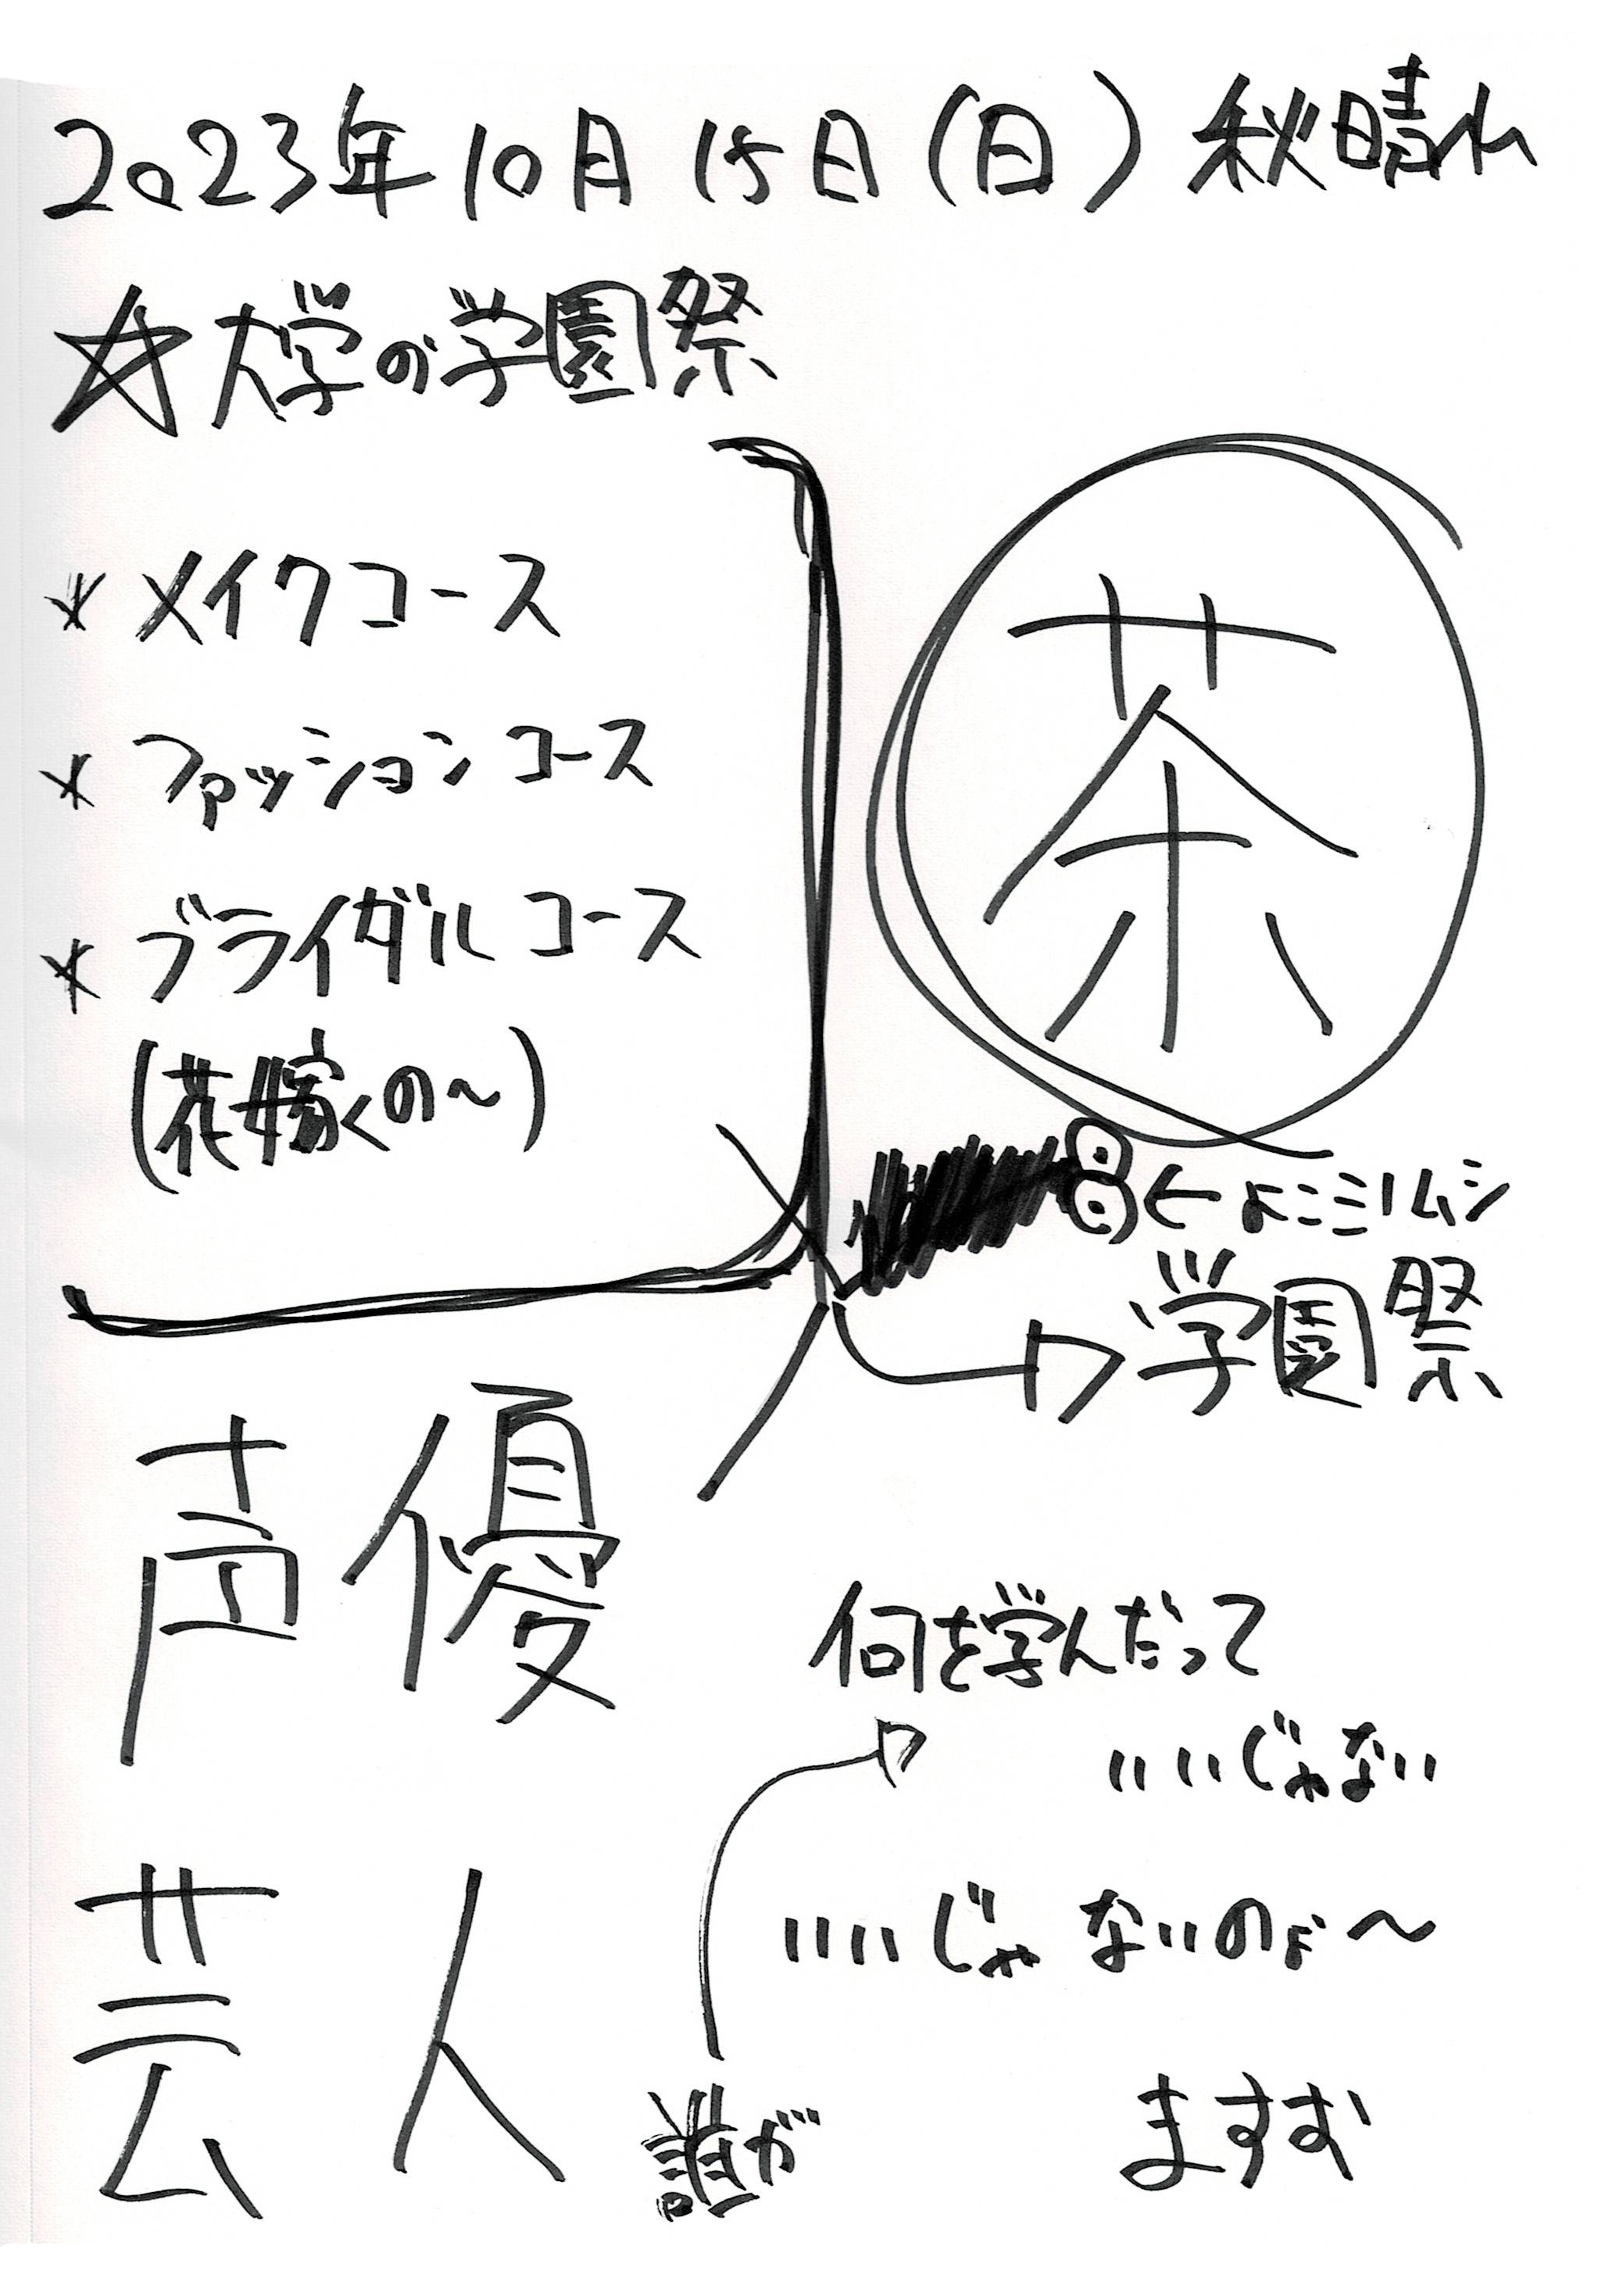 2023年10月15日(日)秋晴れ
☆大学の学園祭
* メイクコース
* ファッションコース
* ブライダルコース
(花嫁くの〜)
茶
←よこミリムシ
学園祭
声優
何を学んだって
いいじゃない
いいじゃないのよ〜
芸人
誰が
ますず